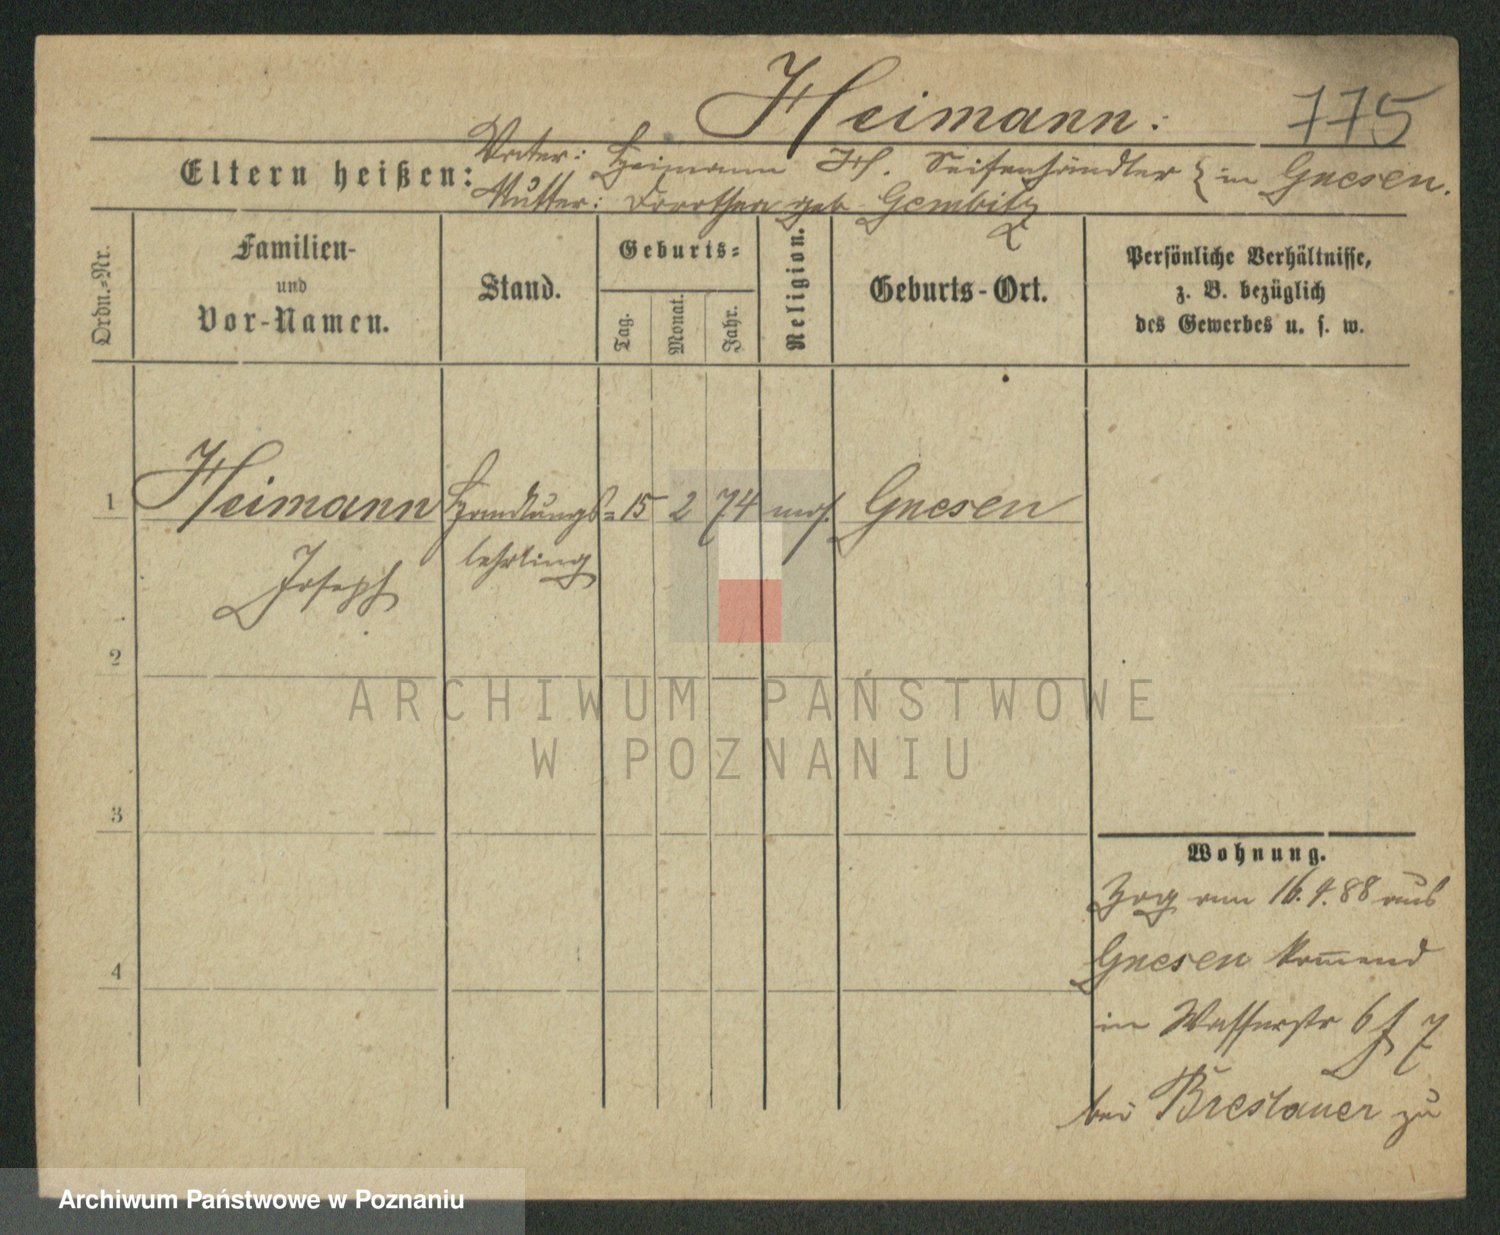 Heimann: 775
Eltern heißen:
Vater: Heimann H. Seifenhändler } in Gnesen.
Mutter: Dorothea geb. Gembitz
Ordn.-Nr.
Familien-
und
Vor-Namen.
Stand.
Geburts-
Tag. Monat. Jahr.
Religion.
Geburts-Ort.
Persönliche Verhältnisse,
z. B. bezüglich
des Gewerbes u. s. w.
1 Heimann Handlungs- 15 2 74 mos. Gnesen
Joseph lehrling
2
3
4
Wohnung.
Zog am 16.4.88 aus
Gnesen kommend
in Wasserstr 6 7
bei Breslauer zu
ARCHIWUM PAŃSTWOWE
W POZNANIU
Archiwum Państwowe w Poznaniu